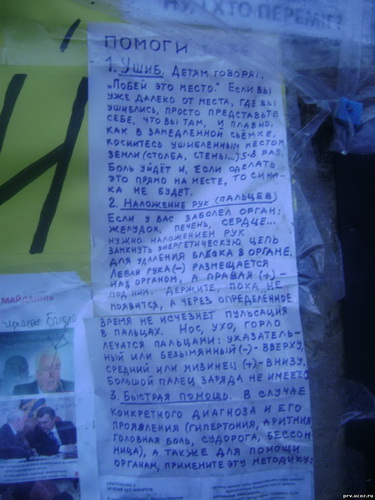 НУ, І ХТО ПЕРЕМІГ?
ПОМОГИ
1. УШИБ. ДЕТЯМ ГОВОРЯТ:
„ПОБЕЙ ЭТО МЕСТО." ЕСЛИ ВЫ
УЖЕ ДАЛЕКО ОТ МЕСТА, ГДЕ ВЫ
УШИБЛИСЬ, ПРОСТО ПРЕДСТАВЬТЕ
СЕБЕ, ЧТО ВЫ ТАМ, И ПЛАВНО,
КАК В ЗАМЕДЛЕННОЙ СЪЁМКЕ,
КОСНИТЕСЬ УШИБЛЕННЫМ МЕСТОМ
ЗЕМЛИ (СТОЛБА, СТЕНЫ...) 5-8 РАЗ.
БОЛЬ УЙДЁТ И, ЕСЛИ СДЕЛАТЬ
ЭТО ПРЯМО НА МЕСТЕ, ТО СИНЯ-
КА НЕ БУДЕТ.
2. НАЛОЖЕНИЕ РУК (ПАЛЬЦЕВ)
ЕСЛИ У ВАС ЗАБОЛЕЛ ОРГАН:
ЖЕЛУДОК, ПЕЧЕНЬ, СЕРДЦЕ...
НУЖНО НАЛОЖЕНИЕМ РУК
ЗАМКНУТЬ ЭНЕРГЕТИЧЕСКУЮ ЦЕПЬ
ДЛЯ УДАЛЕНИЯ БЛОКА В ОРГАНЕ.
ЛЕВАЯ РУКА (–) РАЗМЕЩАЕТСЯ
НАД ОРГАНОМ, А ПРАВАЯ (+) –
ПОД НИМ. ДЕРЖИТЕ, ПОКА НЕ
ПОЯВИТСЯ, А ЧЕРЕЗ ОПРЕДЕЛЁННОЕ
ВРЕМЯ НЕ ИСЧЕЗНЕТ ПУЛЬСАЦИЯ
В ПАЛЬЦАХ. НОС, УХО, ГОРЛО
ЛЕЧАТСЯ ПАЛЬЦАМИ: УКАЗАТЕЛЬ-
НЫЙ ИЛИ БЕЗЫМЯННЫЙ (–) – ВВЕРХУ,
СРЕДНИЙ ИЛИ МИЗИНЕЦ (+) – ВНИЗУ.
БОЛЬШОЙ ПАЛЕЦ ЗАРЯДА НЕ ИМЕЕТ.
3. БЫСТРАЯ ПОМОЩЬ. В СЛУЧАЕ
КОНКРЕТНОГО ДИАГНОЗА И ЕГО
ПРОЯВЛЕНИЯ (ГИПЕРТОНИЯ, АРИТМИЯ,
ГОЛОВНАЯ БОЛЬ, СУДОРОГА, БЕССОН-
НИЦА), А ТАКЖЕ ДЛЯ ПОМОЩИ
ОРГАНАМ, ПРИМЕНИТЕ ЭТУ МЕТОДИКУ:
МАЙДАНИ
prv.ucoz.ru